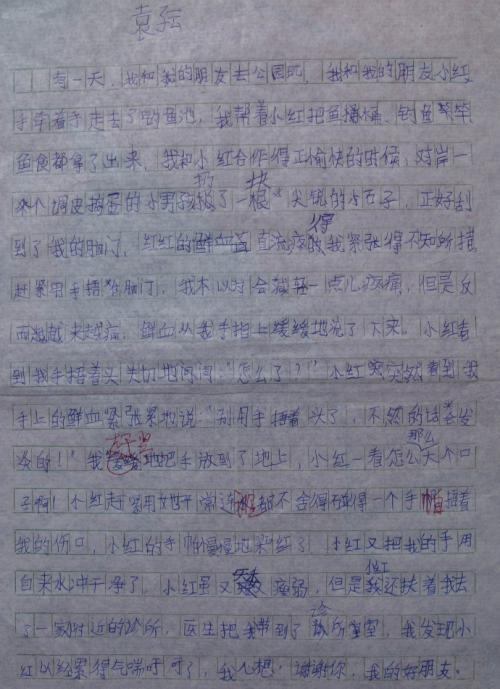 袁坛
有一天,我和我的朋友去公园玩,我和我的朋友小红
手牵着手走去了钓鱼池,我帮着小红把鱼桶、钓鱼竿
鱼食都拿了出来,我和小红合作得正愉快的时候,对岸一
来个调皮捣蛋的小男孩扔了一块尖锐的小石子,正好刮
到了我的脑门,红红的鲜血直流疼得我紧张得不知所措
赶紧用手捂住脑门,我本以为会减轻一点儿疼痛,但是反
而越越来越痛,鲜血从我手指上缓缓地流了下来。小红看
到我手捂着头关切地问问:“怎么了?”小红突然看到我
手上的鲜血紧张紧地说:“别用手捂着头了,不然的话会发
炎的!”我 地把手放到了地上,小红一看怎么那么大个口
子啊!小红赶紧用她平常连 都不舍得碰得一个手帕捂着
我的伤口,小红的手帕慢慢地染红了,小红又把我的手用
自来水冲干净了,小红虽又 又瘦弱,但是小红还扶着我去
了一家附近的诊所,医生把我带到了诊所室,我发现小
红以经累得气喘吁吁了,我心想:谢谢你,我的好朋友。